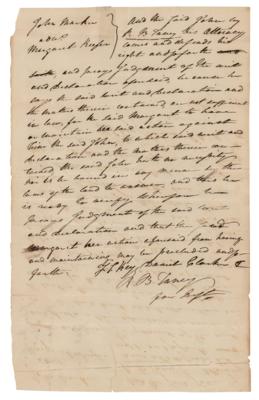 John Marker
ads
Margaret Keefer
And the said John by
R. B. Taney his attorney
comes and defends the
and prays Judgment of the writ
and declaration aforesaid, because he
says the said writ and declaration and
the matters therein contained are not sufficient
in law, for the said Margaret to have
or maintain her said action against
him the said John, to which said writ and
declaration and the matters therein con-
tained the said John hath no necessity
nor is he bound in any manner by the
law of the land to answer, and this he
is ready to verify Wherefore he
prays Judgment of the said writ
and declaration and that the said
Margaret her action aforesaid from having
and maintaining may be precluded and so
forth.
F S Key Daniel Clarke &
R B Taney
for Deft